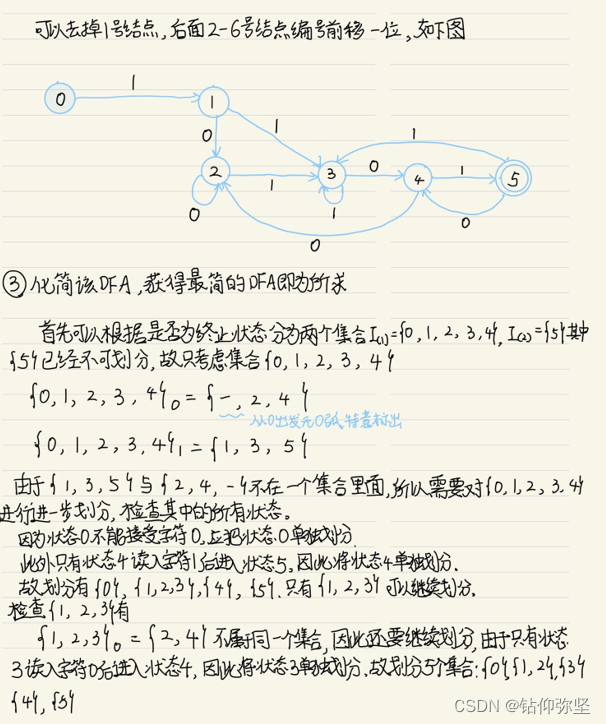 可以去掉1号结点,后面2-6号结点编号前移一位,如下图
1
0
1
0
1
1
2
1
3
0
4
1
5
0
1
0
0
③化简该DFA,获得最简的DFA即为所求
首先可以根据是否为终止状态分为两个集合I(1)={0,1,2,3,4},I(2)={5}其中
{5}已经不可划分,故只考虑集合{0,1,2,3,4}
{0,1,2,3,4}₀={-,2,4}
从0出发无0弧,特意标出
{0,1,2,3,4}₁={1,3,5}
由于{1,3,5}与{2,4,-}不在一个集合里面,所以需要对{0,1,2,3,4}
进行进一步划分,检查其中的所有状态。
因为状态0不能接受字符0,应把状态0单独划分.
此外只有状态4读入字符1后进入状态5,因此将状态4单独划分.
故划分有{0},{1,2,3},{4},{5}.只有{1,2,3}可以继续划分.
检查{1,2,3}有
{1,2,3}₀={2,4}不属于同一个集合,因此还要继续划分,由于只有状态
3读入字符0后进入状态4,因此将状态3单独划分,故划分5个集合:{0}{1,2}{3}
{4},{5}
CSDN @钻仰弥坚